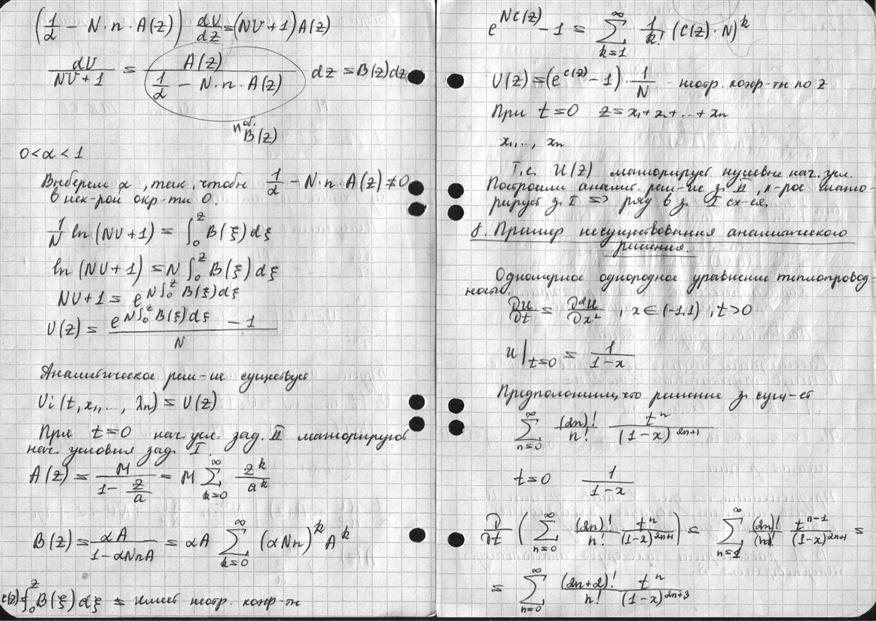 (1/α − N·n·A(z)) dV/dz = (NV+1)A(z)
dV/(NV+1) = A(z)/(1/α − N·n·A(z)) dz = B(z)dz
об.
B(z)
0<α<1
Выберем α, так, чтобы 1/α − N·n·A(z) ≠ 0
в нек-рой окр-ти 0.
1/N ln(NV+1) = ∫₀^z B(ξ)dξ
ln(NV+1) = N∫₀^z B(ξ)dξ
NV+1 = e^{N∫₀^z B(ξ)dξ}
V(z) = (e^{N∫₀^z B(ξ)dξ} − 1)/N
Аналитическое реш-ие существует
Vi(t, x₁,..., xₙ) = V(z)
При t=0 нач. усл. зад. II мажорируют
нач. условия зад. I.
A(z) = M/(1 − z/a) = M ∑_{k=0}^∞ z^k/a^k
B(z) = αA/(1−αNnA) = αA ∑_{k=0}^∞ (αNn)^k A^k
c(z) = ∫₀^z B(ξ)dξ = имеет неотр. коэф-ты
e^{Nc(z)} − 1 = ∑_{k=1}^∞ 1/k! (c(z)·N)^k
V(z) = (e^{c(z)} − 1)·1/N - неотр. коэф-ты по z
При t=0 z = x₁+x₂+...+xₙ
x₁,.., xₙ
Т.е. U(z) мажорирует нулевые нач. усл.
Построили аналит. реш-ие з. II, к-рое мажо-
рирует з. I => ряд в з. I сх-ся.
8. Пример несуществования аналитического
решения.
Одномерное однородное уравнение теплопровод-
ности.
∂u/∂t = ∂²u/∂x², x∈(-1,1), t>0
u|_{t=0} = 1/(1−x)
Предположим, что решение з. сущ-ет
∑_{n=0}^∞ (2n)!/n! t^n/(1−x)^{2n+1}
t=0 1/(1−x)
∂/∂t (∑_{n=0}^∞ (2n)!/n! t^n/(1−x)^{2n+1}) = ∑_{n=1}^∞ (2n)!/n! t^{n−1}/(1−x)^{2n+1} =
= ∑_{n=0}^∞ (2n+2)!/n! t^n/(1−x)^{2n+3}